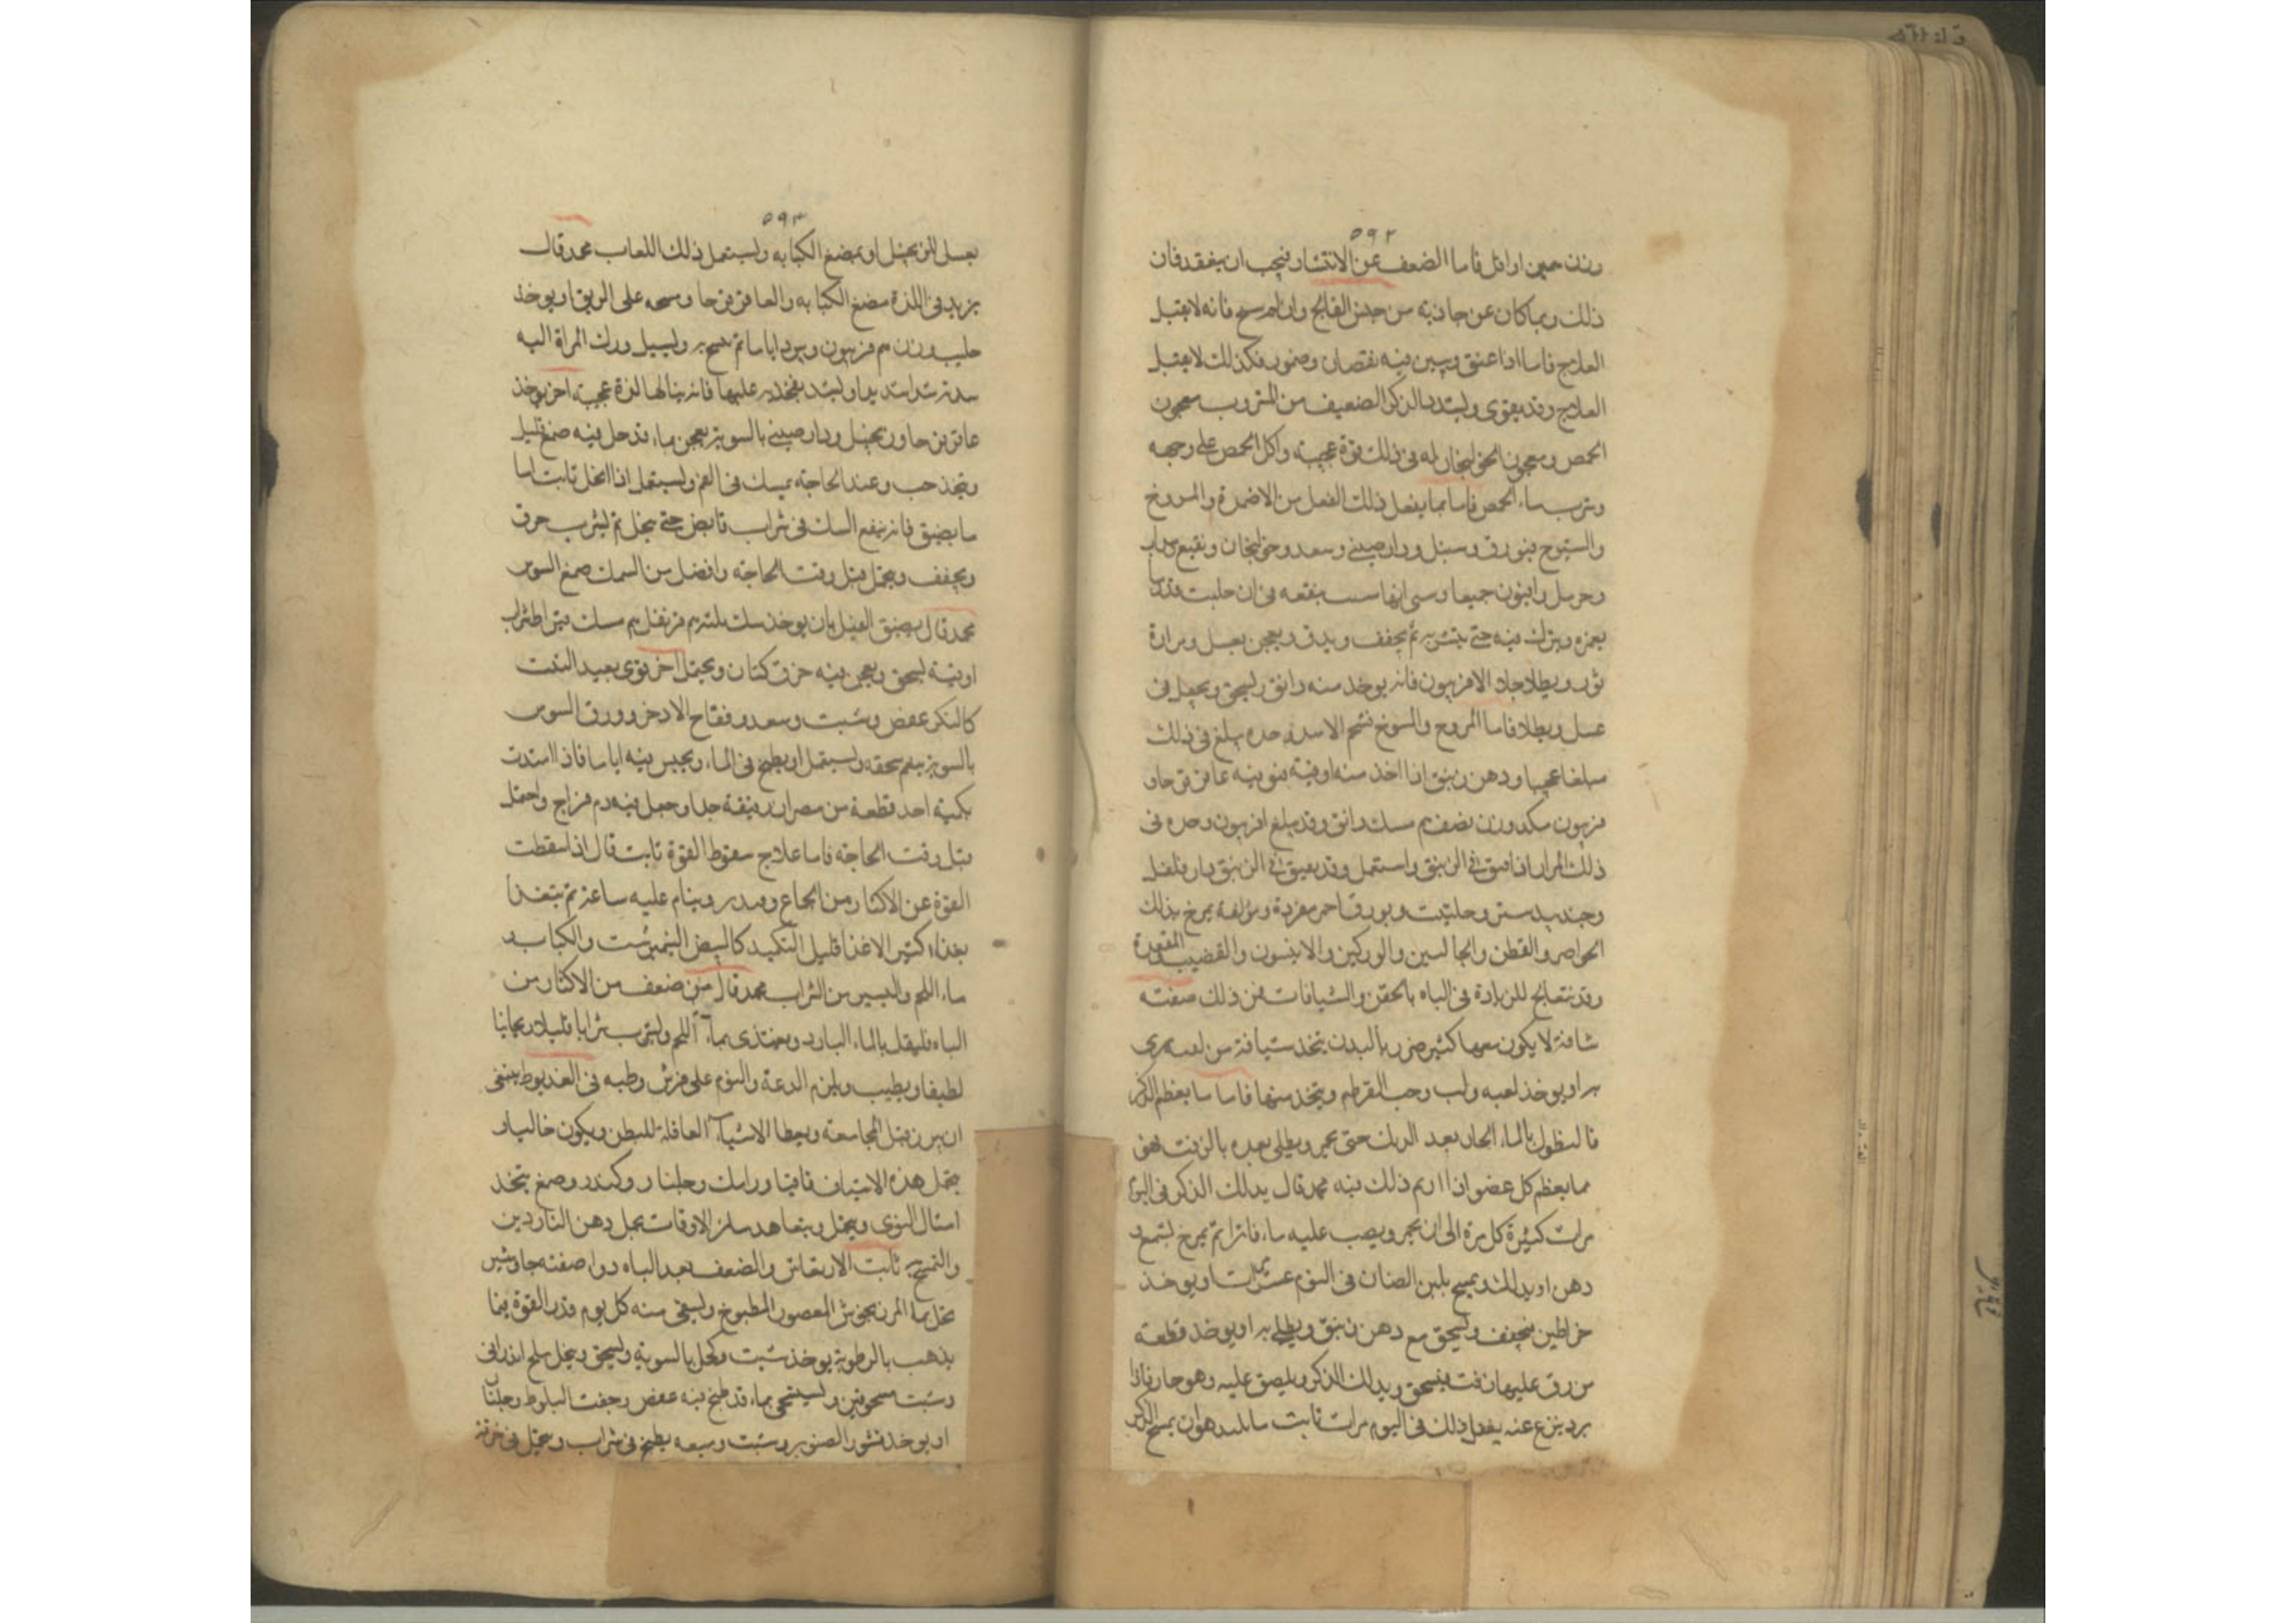 ٥٩٢
وزن حبتين اوائل فاما الضعف عن الانتشار فيجب ان يفقد فان
ذلك ربما كان عن حادثه من جنس الفالج وان لم فانه لا يقبل
العلاج فاما اذا عتق وتبين فيه نقصان وضمور فكذلك لا يقبل
العلاج وقد يقوى ويشتد الذكر الضعيف من المشروب معجون
الحمص ومعجون الخولنجان له فى ذلك قوة عجيبة واكل الحمص على وجهه
وشرب ماء الحمص فاما مما يفعل ذلك الفعل من الاضمدة والمروخ
والمسوح فبورق وسنبل ودارصينى وسعد وخولنجان ونقيع
وحرمل وافيون جميعا ينقعه فى لبن حليب قدر
يغمره ويترك فيه حتى يتشربه ثم يجفف ويدق ويعجن بعسل ومرارة
ثور ويطلا الافربيون فانه يوخذ منه دانق يسحق ويجعل فى
عسل ويطلا فاما المروخ والمسوح فشحم الاسد وحده يبلغ فى ذلك
مبلغا عجيبا ودهن زنبق اذا اخذ منه اوقية فيه عاقر قرحا و
فربيون وزن نصف مسك دانق وقد يبلغ افربيون وحده فى
ذلك المراد اذا فتق فى الزنبق واستعمل وقد يفتق فى الزنبق دار فلفل
وجندبيدستر وحلتيت وبورق احمر مفردة ومؤلفة يمرخ بذلك
الخواصر والقطن والحالبين والوركين والانثيين والقضيب المقعدة
وقد نعالج للزيادة فى الباه بالحقن والشيافات فمن ذلك صفته
شافة لا يكون معها كثير ضرر بالبدن يتخذ شيافة من لعبه بربرى
او يوخذ لعبه ولب وحب القرطم ويتخذ منها فاما ما يعظم الذكر
فالنطول بالماء الحار بعد الدلك حتى يحمر ويطلى بعده بالزفت فهو
مما يعظم كل عضو اذا اديم ذلك فيه محمد قال يدلك الذكر فى اليوم
مرات كثيرة كل مرة الى ان يحمر ويصب عليه ماء فاترا ثم يمرخ بشمع و
دهن او يدلك ويمسح بلبن الضان فى اليوم عشر مرات او يوخذ
خراطين يجفف ويسحق مع دهن زنبق ويطلى به او يوخذ قطعة
من زق عليها زفت فيسحق ويدلك الذكر ويلصق عليه وهو حار فاذا
برد ينزع عنه يفعل ذلك فى اليوم مرات ثابت هو ان يمسح الذكر
٥٩٣
بعسل الزنجبيل او يمضغ الكبابه ويستعمل ذلك اللعاب محمد قال
يزيد فى اللذة مضغ الكبابه والعاقر قرحا ومسحه على الريق او يوخذ
حليب وزن فربيون ويرد اياما ثم يمسح به ويسيل ورك المراة اليه
شدا شديدا ويشد بفخذيه عليها فانه ينالها لذة عجيبة اخر يوخذ
عاقر قرحا وزنجبيل ودارصينى بالسوية يعجن بماء قد حل فيه صمغ قليل
ويتخذ حب وعند الحاجة يمسك فى الفم ويستعمل اذا انحل ثابت اما
ما يضيق فانه ينقع السك فى شراب قابض حتى ينحل ثم يشرب خرق
ويجفف ويحتمل قبل وقت الحاجه وافضل من السك صمغ السوس
محمد قال يضيق القبل بان يوخذ سك قرنفل مسك شراب
اوقية يسحق ويعجن فيه خرق كتان ويحتمل اخر قوى يعيد البنت
كالبكر عفص وشبت وسعد وفقاح الاذخر وورق السوس
بالسوية ينعم سحقه ويستعمل او يطبخ فى الماء ويجلس فيه اياما فاذا اشتدت
اخذ قطعة من مصران رقيقة جدا وجعل فيه دم فراخ واحتمل
قبل وقت الحاجه فاما علاج سقوط القوة ثابت قال اذا سقطت
القوة عن الاكثار من الجماع وينام عليه ساعة ثم يتغذا
بغذاء كثير الاغذا قليل التكبد كالبيض النيمبرشت والكباب و
ماء اللحم واليسير من الشراب محمد قال من ضعف من الاكثار من
الباه فليقل بالماء البارد ويغتذى بماء اللحم ويشرب شرابا قليلا ريحانيا
لطيفا ويطيب ويلزم الدعة والنوم على فرش وطيه فى العذيوط ينبغى
ان يبرز قبل المجامعة ويعطا الاشياء العاقلة للبطن ويكون خاليا و
يحتمل هذه الاشياف قاقيا ورامك وجلنار وكندر وصمغ يتخذ
امثال النوى ويحتمل ويتعاهد سائر الاوقات بحمل دهن الناردين
والتمسح به ثابت الارتعاش والضعف بعد الباه دواء صفته جاوشير
يحل بماء المرزنجوش المعصور المطبوخ ويسقى منه كل يوم قدر القوة
يذهب بالرطوبة يوخذ شبت وكحل بالسوية ويسحق وينخل ملح اندرانى
وشبت مسحوقين ويستنجى بماء قد طبخ فيه عفص وجفت البلوط وجلنار
او يوخذ قشور الصنوبر وشبت وسعد يطبخ فى شراب ويحتمل فى خرقة